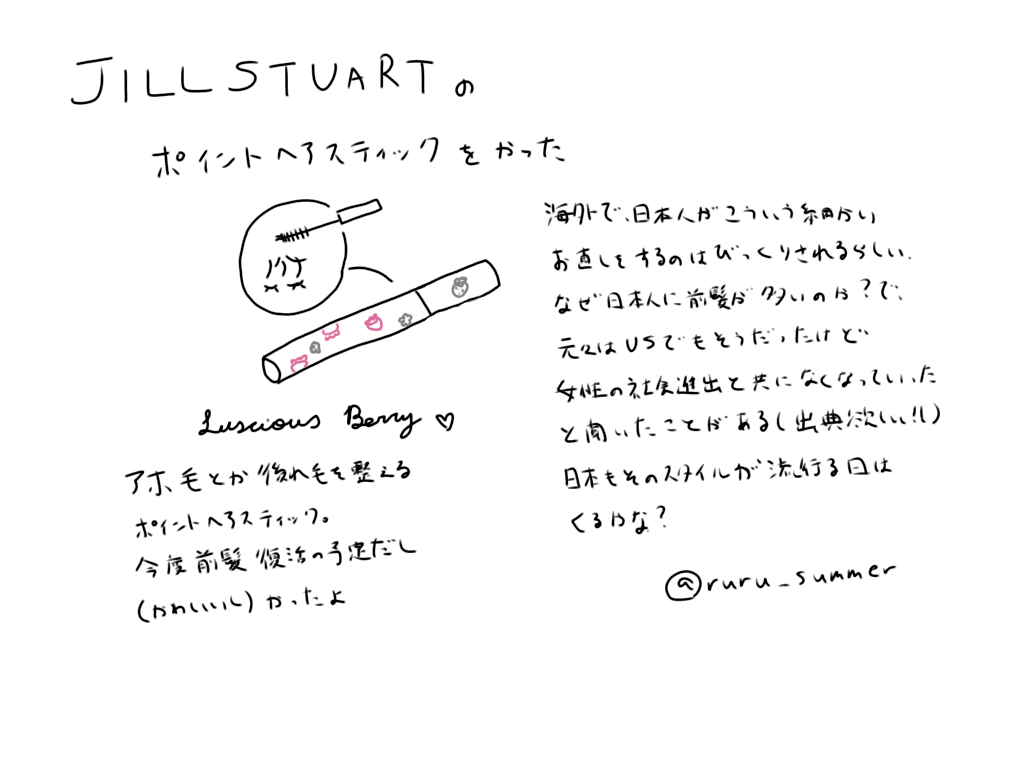 JILLSTUARTの
ポイントヘアスティックをかった
Luscious Berry ♡
アホ毛とか後れ毛を整える
ポイントヘアスティック。
今度前髪復活の予定だし
(かわいいし)かったよ
海外で、日本人がこういう細かい
お直しをするのはびっくりされるらしい。
なぜ日本人に前髪が多いのか?で、
元々はUSでもそうだったけど
女性の社会進出と共になくなっていった
と聞いたことがある(出典欲しい!!)
日本もそのスタイルが流行る日は
くるかな?
@ruru_summer